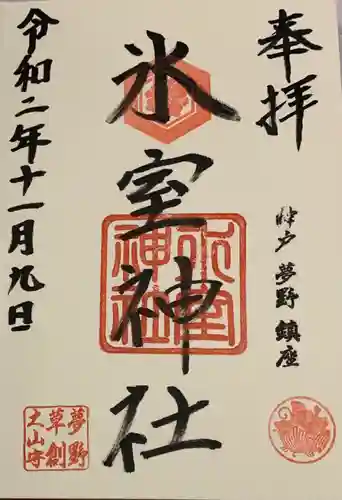 奉拝
神戸 夢野 鎮座
氷室神社
氷室神社
令和二年十一月九日
夢野
草創
之山守